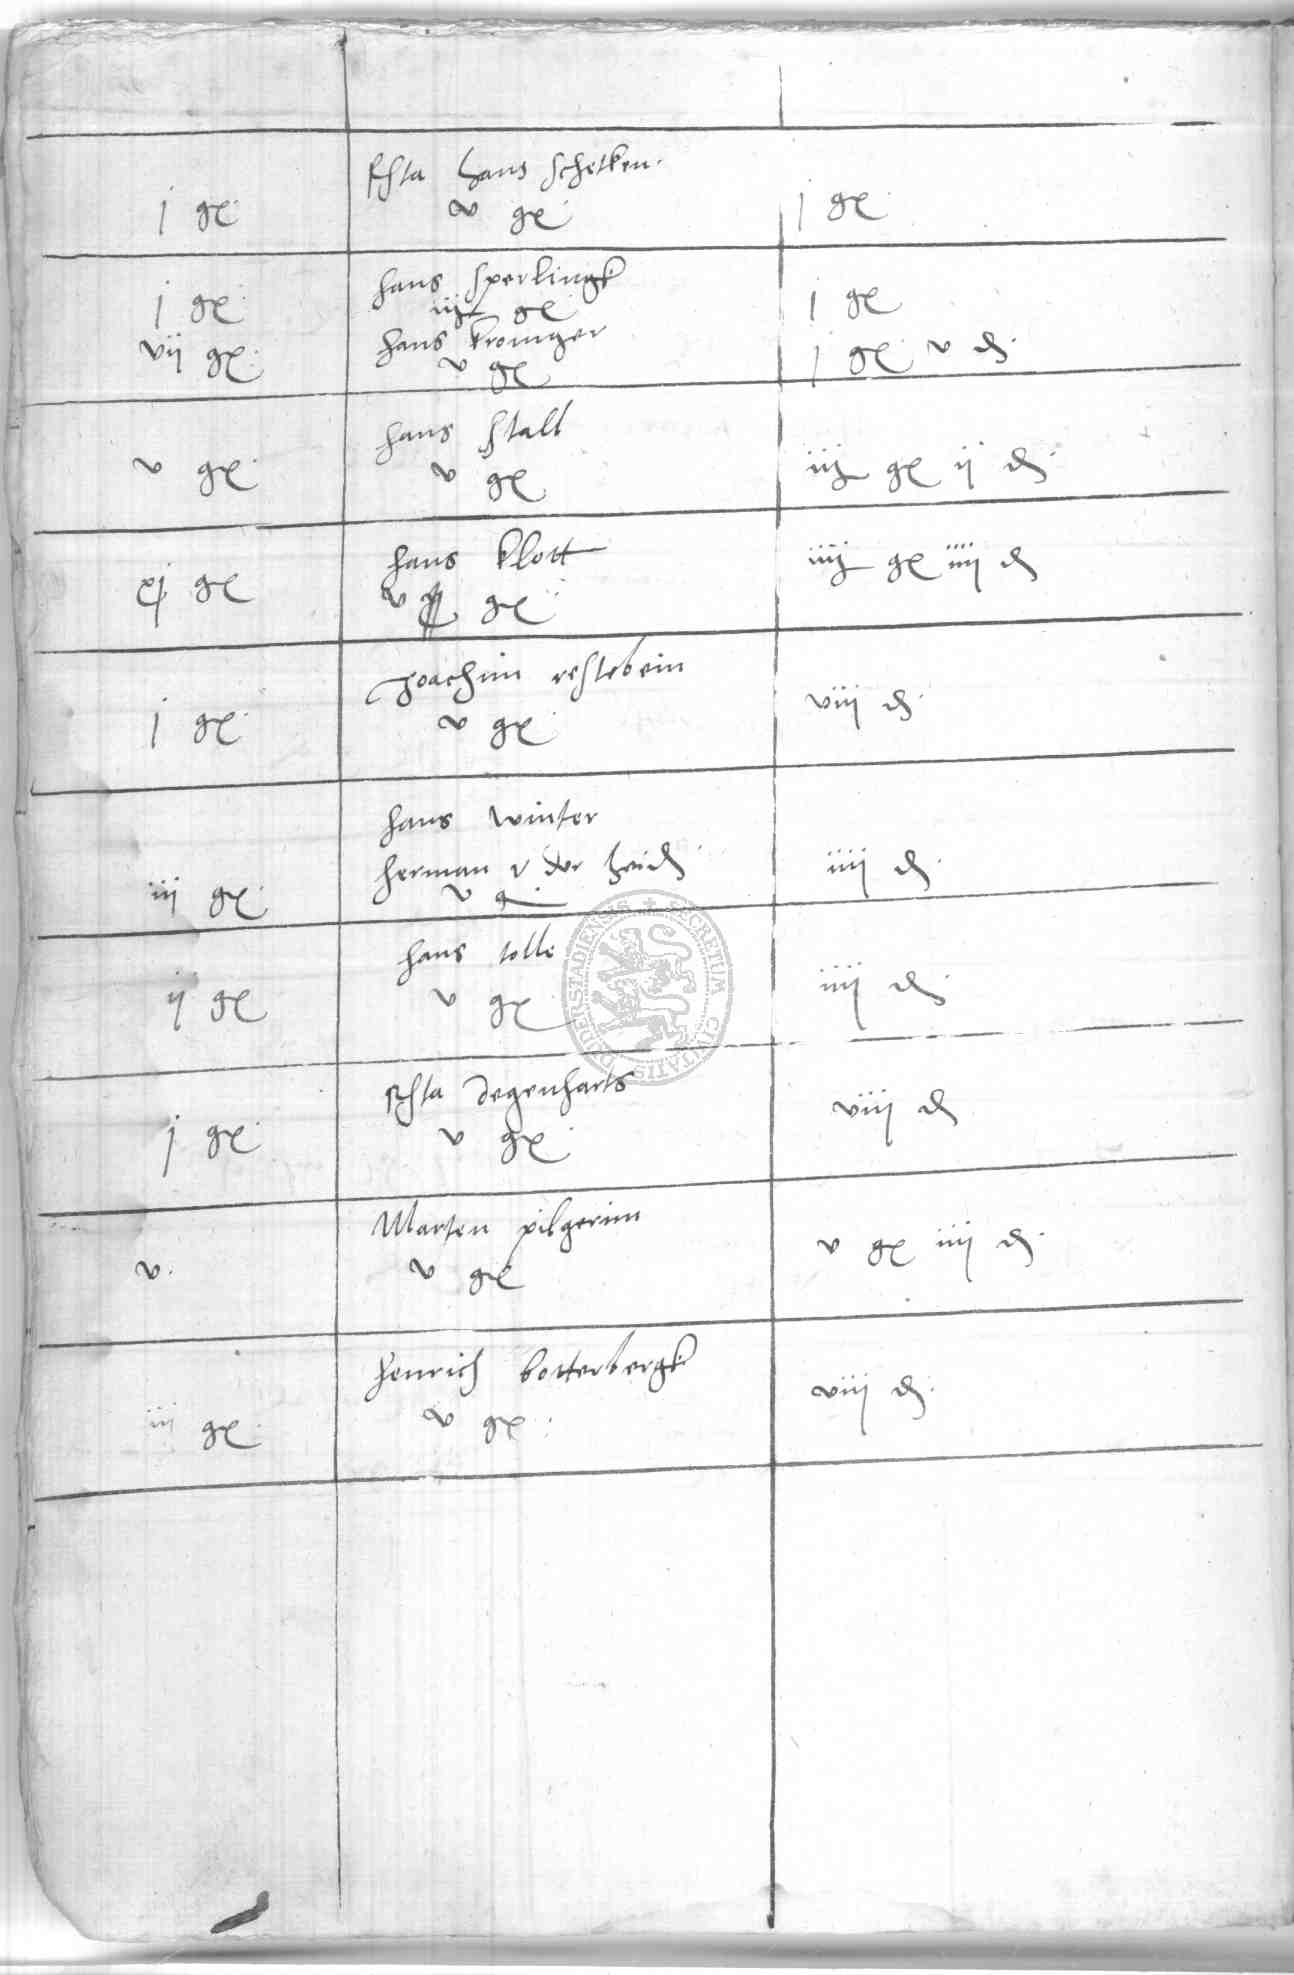 rsta hans schetken.
j gr v gr j gr
hans sperlingk
j gr iiij gr j gr
hans kroniger
vij gr v gr j gr v d
hans stall
v gr v gr iiij gr ij d
hans klott
xj gr v gr iiiij gr iiij d
Joachim restebein
j gr v gr viij d
hans winter
herman v der heid
iij gr v g iiij d
hans tolle
ij gr v gr iiij d
rsta degenharts
j gr v gr viij d
Marten pilgerim
v. v gr v gr iiij d
henrich botterbergk
iij gr v gr viij d
SECRETUM CIVITATIS DUDERSTADIENSIS